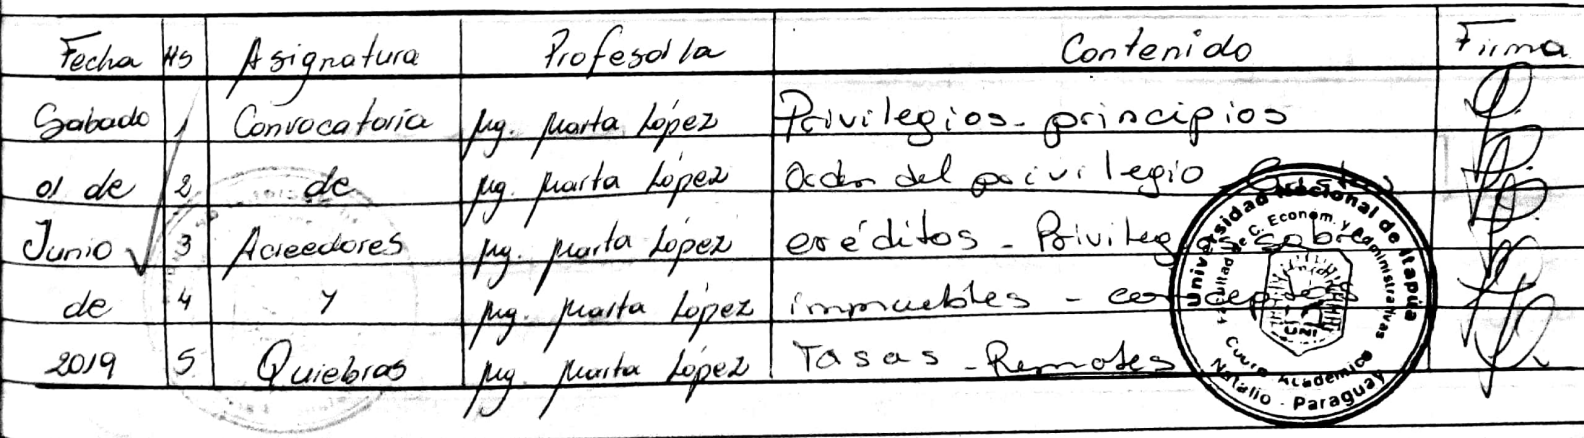 Fecha Hs Asignatura Profesor/a Contenido Firma
Sabado 1 Convocatoria Mg. Marta López Privilegios - principios
01 de 2 de Mg. Marta López Orden del privilegio
Junio 3 Acreedores Mg. Marta López créditos - Privilegios sobre
de 4 y Mg. Marta López inmuebles - conceptos
2019 5 Quiebras Mg. Marta López Tasas - Remates
Universidad Nacional de Itapúa
Facultad de C. Econom. y Administrativas
UNI
Natalio - Paraguay